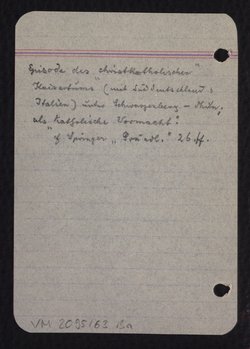 Episode des „christkatholischen"
Kaisertums (mit Süddeutschland u.
Italien) unter Schwarzenberg –
als „katholische Vormacht".
cf Springer „ 26 ff.
VM 2095/63 Ba